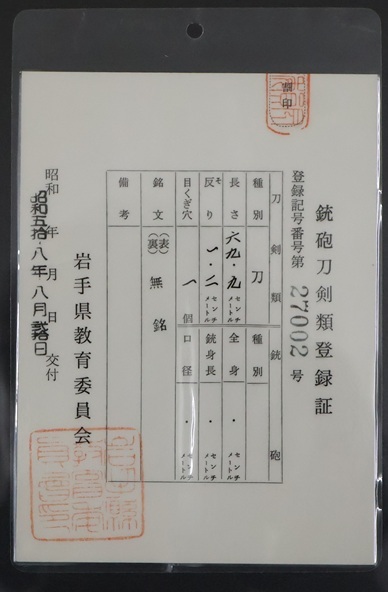 割印
銃砲刀剣類登録証
登録記号番号第 27002 号
刀剣類 銃砲
種別 刀 種別
長さ 六九・九 センチメートル 全身 ・ センチメートル
反り 一・二 センチメートル 銃身長 ・ センチメートル
目くぎ穴 一 個 口径 ・ センチメートル
銘文 (表)(裏) 無銘
備考
岩手県教育委員会
昭和 年 月 日 交付
昭和五拾八年八月 日